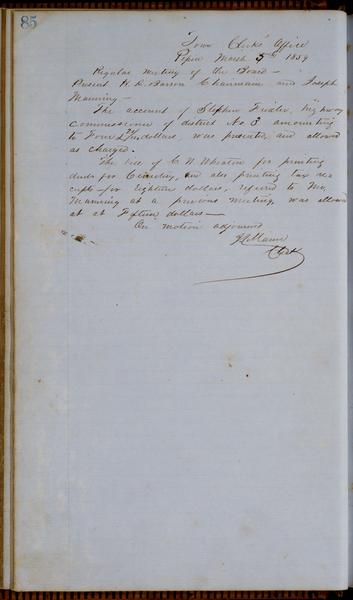 85
Town Clerks Office
Pepin March 5th 1859
Regular meeting of the Board—
Present H. D. Barron Chairman and Joseph
Manning—
The account of Stephen Highway
commissioner of district No 3 amounting
to Four dollars, was presented and allowed
as charged.
The bill of C N Wheaton for printing
deeds for Cemetery, and also printing tax re
cepts for Eighteen dollars, refered to Mr
Manning at a previous meeting, was allowed
at at Fifteen dollars—
On motion adjourned
Clerk